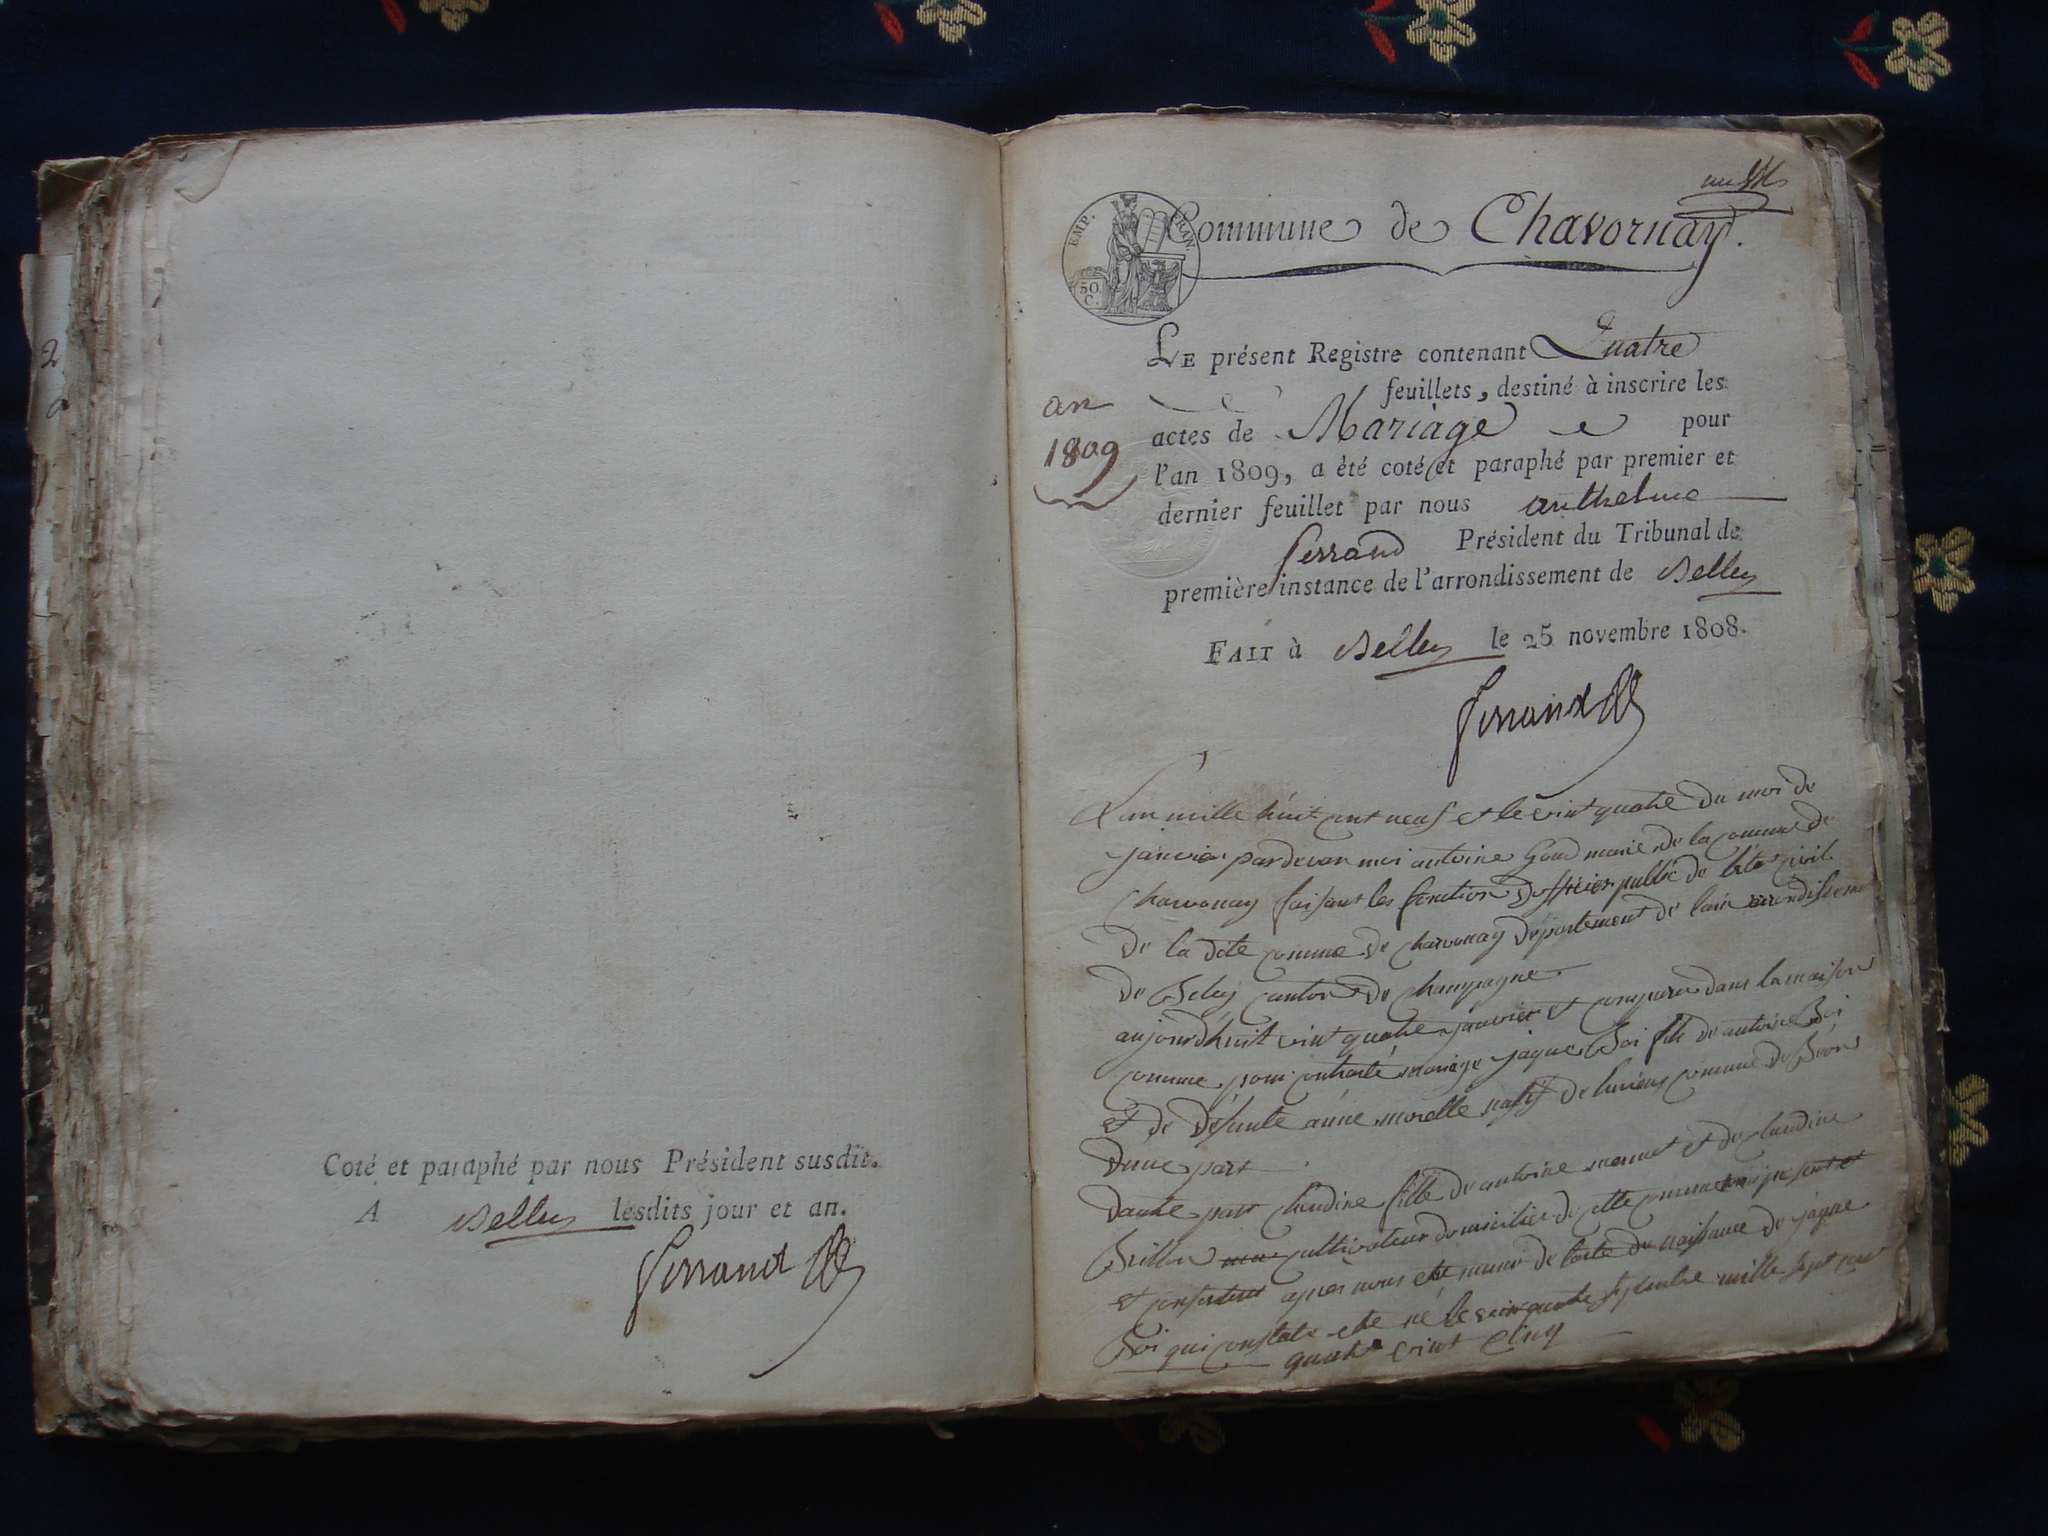 2
Coté et paraphé par nous Président susdit.
A Belley lesdits jour et an.
Ferrand
EMP. FRAN
50
C.
Commune de Chavornay.
an
1809
LE présent Registre contenant Quatre
feuillets, destiné à inscrire les
actes de Mariage pour
l'an 1809, a été coté et paraphé par premier et
dernier feuillet par nous anthelme
ferrand Président du Tribunal de
première instance de l'arrondissement de Belley
FAIT à Belley le 25 novembre 1808.
Ferrand
L'an mille huit cent neuf et le vint quatre du mois de
janvier pardevan moi antoine Goud maire de la comune de
Chavornay faisant les fonction d'officier public de l'éta civil
de la dite comune de chavornay département de lain arrondisseme
de Beley canton de champagne
aujourd'huit vint quatre janvier et comparu dans la maison
comune pour contracté mariage jaque Boi fils de antoine Boi
et de défunte anne morelle natif de luvieu comune de Béon
dune part
dautre part claudine fille de antoine monnet et de claudine
Brillon cultivateur domicilié de cette comune present et
et consentent après nous etre muni de lacte de naissance de jaque
Boi qui constate etre né le septembre mille sept cen
quatre vint cinq